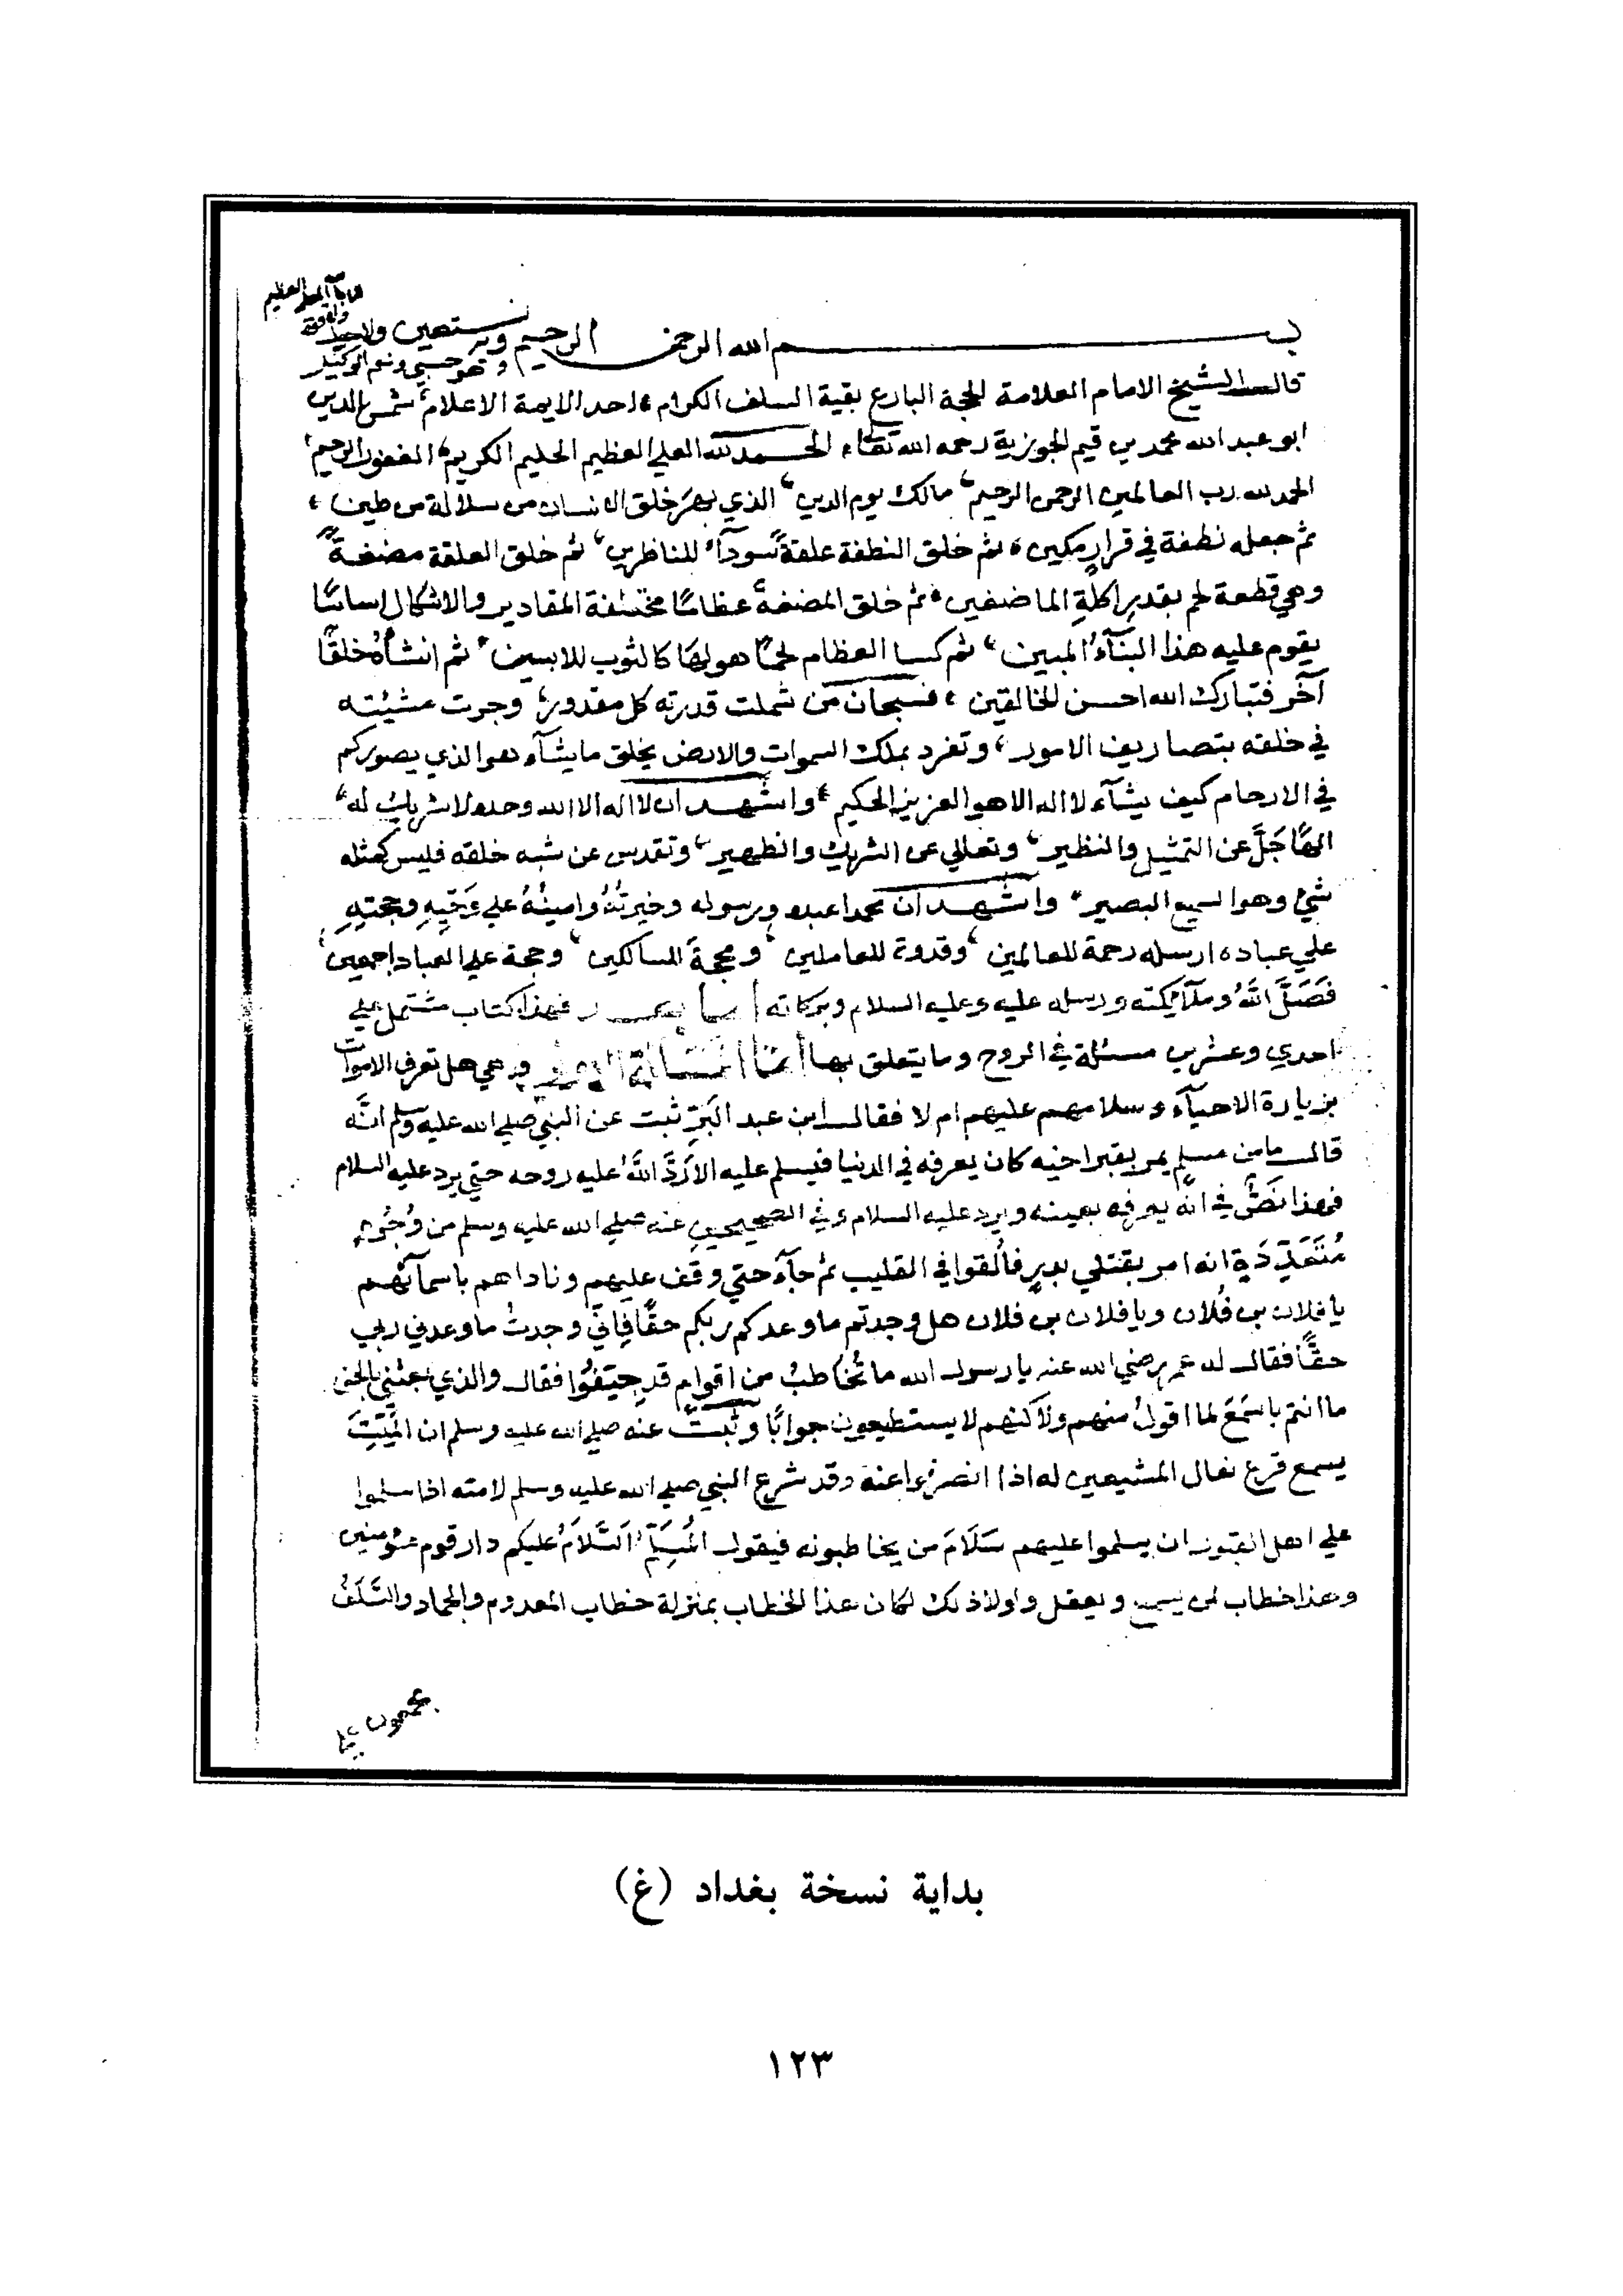 بسم الله الرحمن الرحيم وبه نستعين ولا حول ولا قوة
الا بالله العلي العظيم
وهو حسبي ونعم الوكيل
قال الشيخ الامام العلامة الحجة البارع بقية السلف الكرام، احد الايمة الاعلام، شمس الدين
ابو عبد الله محمد بن قيم الجوزية رحمه الله تعالى، الحمد لله العلي العظيم الحليم الكريم، الغفور الرحيم،
الحمد لله رب العالمين الرحمن الرحيم، مالك يوم الدين، الذي خلق الانسان من سلالة من طين،
ثم جعله نطفة في قرارٍ مكين، ثم خلق النطفة علقةً سودآء للناظرين، ثم خلق العلقة مضغةً
وهي قطعة لحم بقدر اكلةِ الماضغين، ثم خلق المضغة عظامًا مختلفة المقادير والاشكال اساسًا
يقوم عليه هذا البنآءُ المبين، ثم كسا العظام لحمًا هو لها كالثوب للابسين، ثم انشأهُ خلقًا
آخر فتبارك الله احسن الخالقين، فسبحان من شملت قدرته كل مقدور، وجرت مشيئته
في خلقه بتصاريف الامور، وتفرد بملك السموات والارض يخلق ما يشآء هو الذي يصوركم
في الارحام كيف يشآء لا اله الا هو العزيز الحكيم، واشهد ان لا اله الا الله وحده لا شريك له،
الهًا جَلَّ عن التمثيل والنظير، وتعالي عن الشريك والظهير، وتقدس عن شبه خلقه فليس كمثله
شيء وهو السميع البصير، واشهد ان محمدا عبده ورسوله وخيرتُهُ وامينُهُ علي وَحْيِهِ وحجتِهِ
علي عباده ارسله رحمة للعالمين، وقدوة للعاملين، ومحجةَ السالكين، وحجة علي العباد اجمعين،
فَصَلَّ اللهُ وملآئكته ورسله عليه وعليه السلام وبركاته اما بعد فهذا كتاب مشتمل علي
احدي وعشرين مسئلة في الروح وما يتعلق بها اما المسألة وهي هل تعرف الاموات
بزيارة الاحيآء وسلامهم عليهم ام لا فقال ابن عبد البَرِّ ثبت عن النبي صلي الله عليه وسلم انَّه
قال ما من مسلم يمر بقبر اخيه كان يعرفه في الدنيا فيسلم عليه الا رَدَّ اللهُ عليه روحه حتي يرد عليه السلام
فهذا نَصٌّ في انَّه يعرفه بعينه ويرد عليه السلام وفي الصحيحين عنه صلي الله عليه وسلم من وُجُوهٍ
مُتَعَدِّدَةٍ انه امر بقتلي بدرٍ فأُلقوا في القليب ثم جآء حتي وقف عليهم وناداهم باسمآئهم
يا فلان بن فُلان ويا فلان بن فلان هل وجدتم ما وعدكم ربكم حقًّا فإنّي وجدتُ ما وعدني ربي
حقًّا فقال له عمر رضي الله عنه يا رسول الله ما تُخاطبُ من اقوام قد جيّفُوا فقال والذي بعثني بالحق
ما انتم باسْمَعَ لما اقولُ منهم ولاكنهم لا يستطيعون جوابًا وثبت عنه صلي الله عليه وسلم ان الميّتَ
يسمع قرع نعال المشيعين له اذا انصرفوا عنه وقد شرع النبي صلي الله عليه وسلم لامته اذا سلموا
علي اهل القبور ان يسلموا عليهم سَلَامَ من يخاطبونه فيقول المُسَلِّمُ السَّلامُ عليكم دار قوم مؤمنين
وهذا خطاب لمن يسمع ويعقل ولولا ذلك لكان هذا الخطاب بمنزلة خطاب المعدوم والجماد والسَّلَفُ
مجمعون علي
بداية نسخة بغداد (غ)
١٢٣